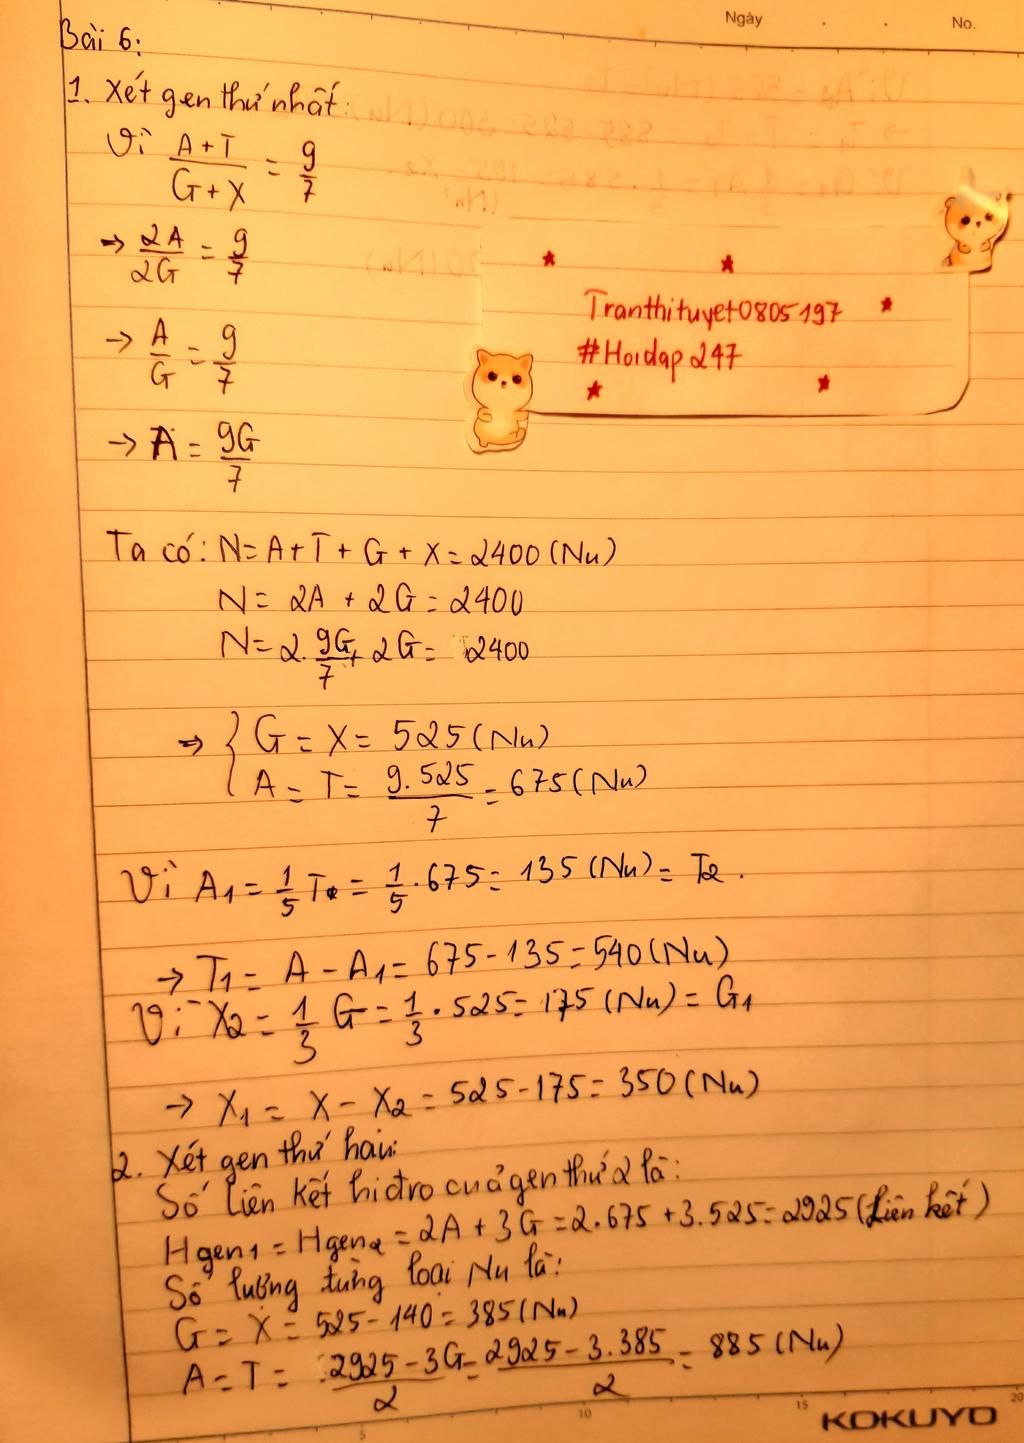 Ngày . . No.
Bài 6:
1. Xét gen thứ nhất:
Vì A+T/G+X = 9/7
→ 2A/2G = 9/7
→ A/G = 9/7
→ A = 9G/7
Tranthituyet0805197
#Hoidap247
Ta có: N=A+T+G+X=2400(Nu)
N= 2A + 2G=2400
N=2.9G/7+2G= 2400
→ { G = X = 525(Nu)
A = T= 9.525/7=675(Nu)
Vì A1=1/5T=1/5.675=135(Nu)=T2.
→ T1= A-A1= 675-135=540(Nu)
Vì X2=1/3G=1/3.525=175(Nu)=G1
→ X1= X-X2=525-175=350(Nu)
2. Xét gen thứ hai:
Số liên kết hiđro của gen thứ 2 là:
Hgen1=Hgen2=2A+3G=2.675+3.525=2925(liên kết)
Số lượng từng loại Nu là:
G= X= 525-140=385(Nu)
A=T= 2925-3G/2=2925-3.385/2=885(Nu)
5 10 15 20
KOKUYO